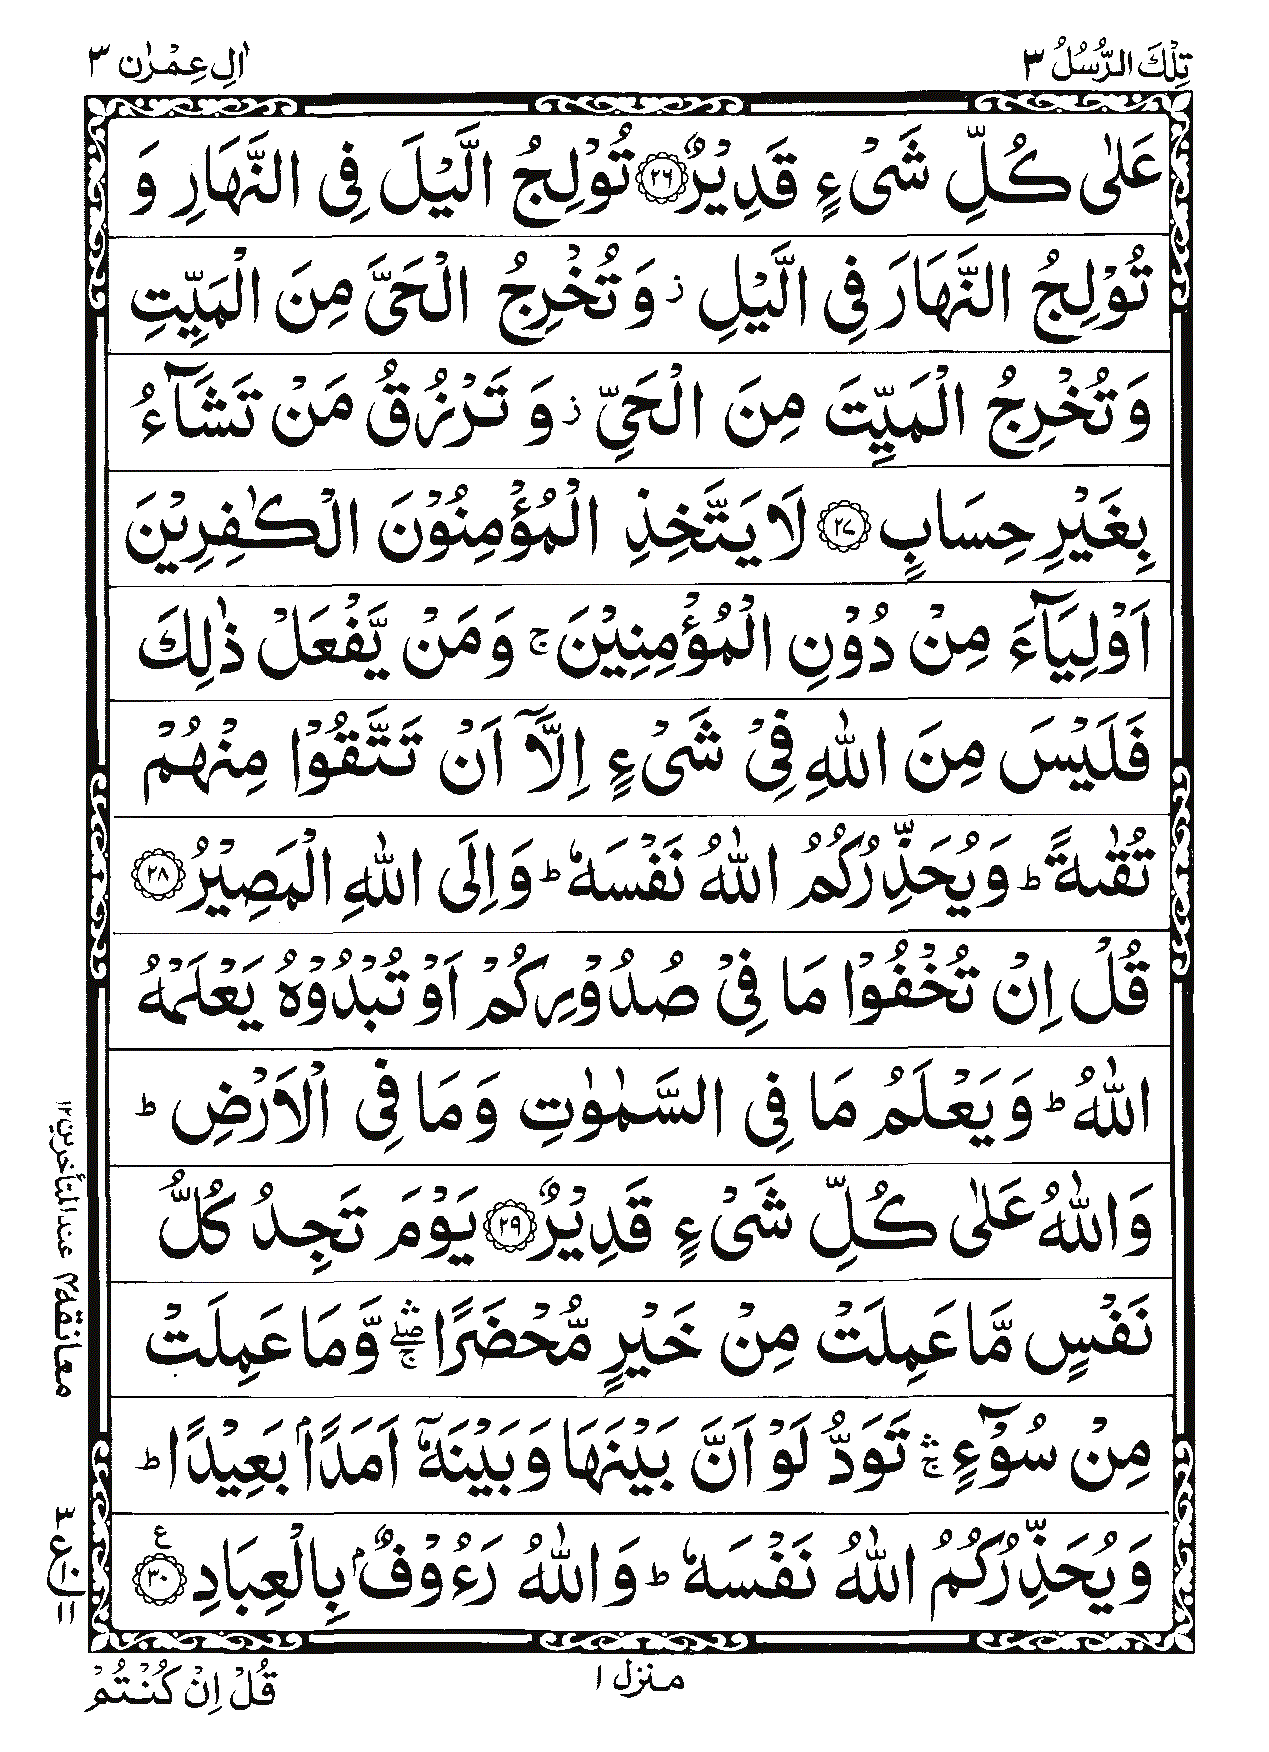 تِلْكَ الرُّسُلُ ٣
اٰلِ عِمْرٰن ٣
عَلٰى كُلِّ شَیْءٍ قَدِيْرٌ ﴿٢٦﴾ تُوْلِجُ الَّيْلَ فِى النَّهَارِ وَ
تُوْلِجُ النَّهَارَ فِى الَّيْلِ ز وَ تُخْرِجُ الْحَىَّ مِنَ الْمَيِّتِ
وَتُخْرِجُ الْمَيِّتَ مِنَ الْحَىِّ ز وَ تَرْزُقُ مَنْ تَشَآءُ
بِغَيْرِ حِسَابٍ ﴿٢٧﴾ لَا يَتَّخِذِ الْمُؤْمِنُوْنَ الْكٰفِرِيْنَ
اَوْلِيَآءَ مِنْ دُوْنِ الْمُؤْمِنِيْنَ ج وَمَنْ يَّفْعَلْ ذٰلِكَ
فَلَيْسَ مِنَ اللّٰهِ فِىْ شَىْءٍ اِلَّاۤ اَنْ تَتَّقُوْا مِنْهُمْ
تُقٰىةً ط وَيُحَذِّرُكُمُ اللّٰهُ نَفْسَهٗ ط وَاِلَى اللّٰهِ الْمَصِيْرُ ﴿٢٨﴾
قُلْ اِنْ تُخْفُوْا مَا فِىْ صُدُوْرِكُمْ اَوْ تُبْدُوْهُ يَعْلَمْهُ
اللّٰهُ ط وَيَعْلَمُ مَا فِى السَّمٰوٰتِ وَمَا فِى الْاَرْضِ ط
وَاللّٰهُ عَلٰى كُلِّ شَىْءٍ قَدِيْرٌ ﴿٢٩﴾ يَوْمَ تَجِدُ كُلُّ
نَفْسٍ مَّا عَمِلَتْ مِنْ خَيْرٍ مُّحْضَرًا ۛۖۚ وَّمَا عَمِلَتْ
مِنْ سُوْٓءٍ ۛۚ تَوَدُّ لَوْ اَنَّ بَيْنَهَا وَبَيْنَهٗۤ اَمَدًاۢ بَعِيْدًا ط
وَيُحَذِّرُكُمُ اللّٰهُ نَفْسَهٗ ط وَاللّٰهُ رَءُوْفٌۢ بِالْعِبَادِ ﴿٣٠﴾ ع
معانقه ٢ عند المتأخرين ١٢
ع ١٠ ١١
منزل ١
قُلْ اِنْ كُنْتُمْ